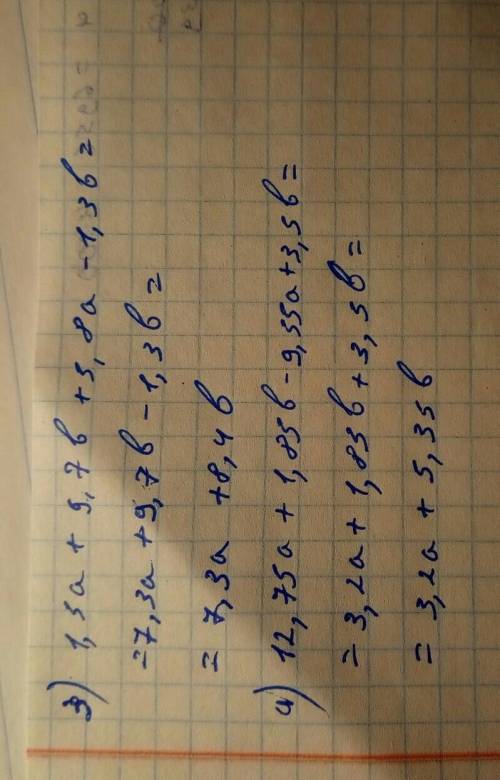 3) 1,5a + 9,7b + 5,8a - 1,3b =
= 7,3a + 9,7b - 1,3b =
= 7,3a + 8,4b
4) 12,75a + 1,85b - 9,55a + 3,5b =
= 3,2a + 1,85b + 3,5b =
= 3,2a + 5,35b